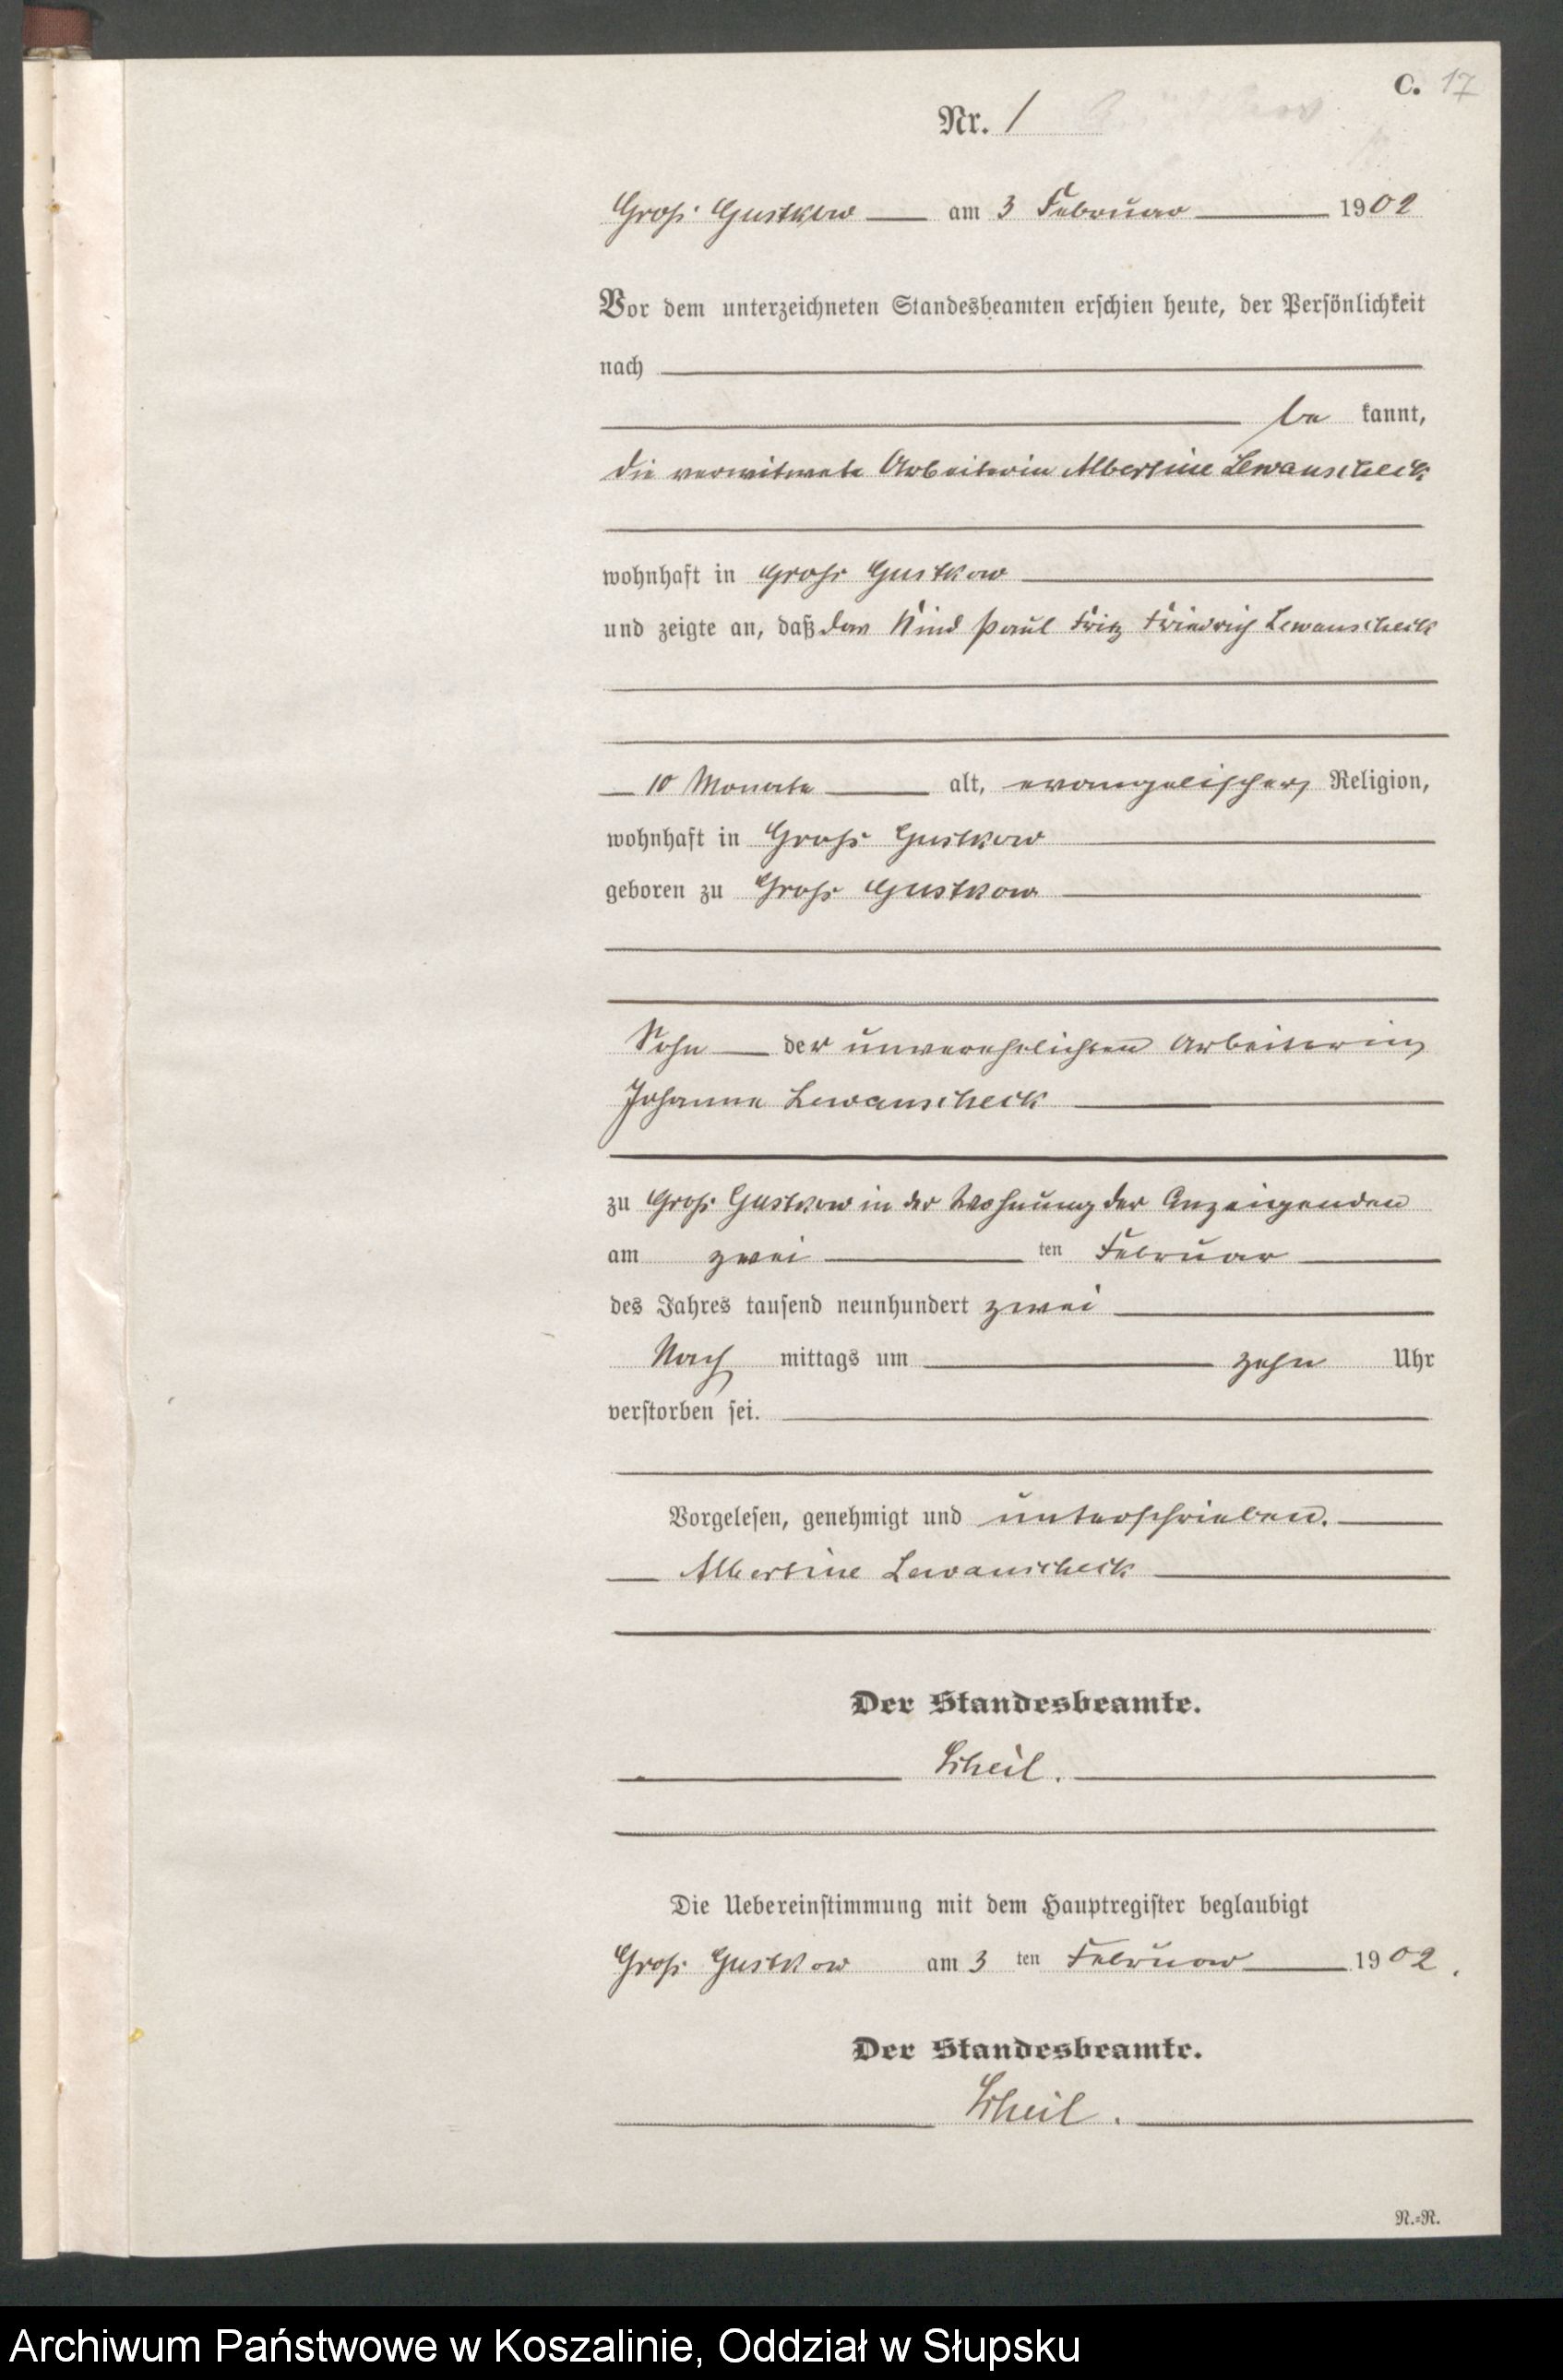 C. 17
Nr. 1
Groß Gustkow am 3 Februar 1902
Vor dem unterzeichneten Standesbeamten erschien heute, der Persönlichkeit
nach
be kannt,
die verwitwete Arbeiterin Albertine Lewanscheck
wohnhaft in Groß Gustkow
und zeigte an, daß das Kind Paul Fritz Friedrich Lewanscheck
10 Monate alt, evangelischer Religion,
wohnhaft in Groß Gustkow
geboren zu Groß Gustkow
Sohn der unverehelichten Arbeiterin
Johanna Lewanscheck
zu Groß Gustkow in der Wohnung der Anzeigenden
am zwei ten Februar
des Jahres tausend neunhundert zwei
Nach mittags um zehn Uhr
verstorben sei.
Vorgelesen, genehmigt und unterschrieben.
Albertine Lewanscheck
Der Standesbeamte.
Scheil.
Die Uebereinstimmung mit dem Hauptregister beglaubigt
Groß Gustkow am 3 ten Februar 1902.
Der Standesbeamte.
Scheil.
N.=R.
Archiwum Państwowe w Koszalinie, Oddział w Słupsku